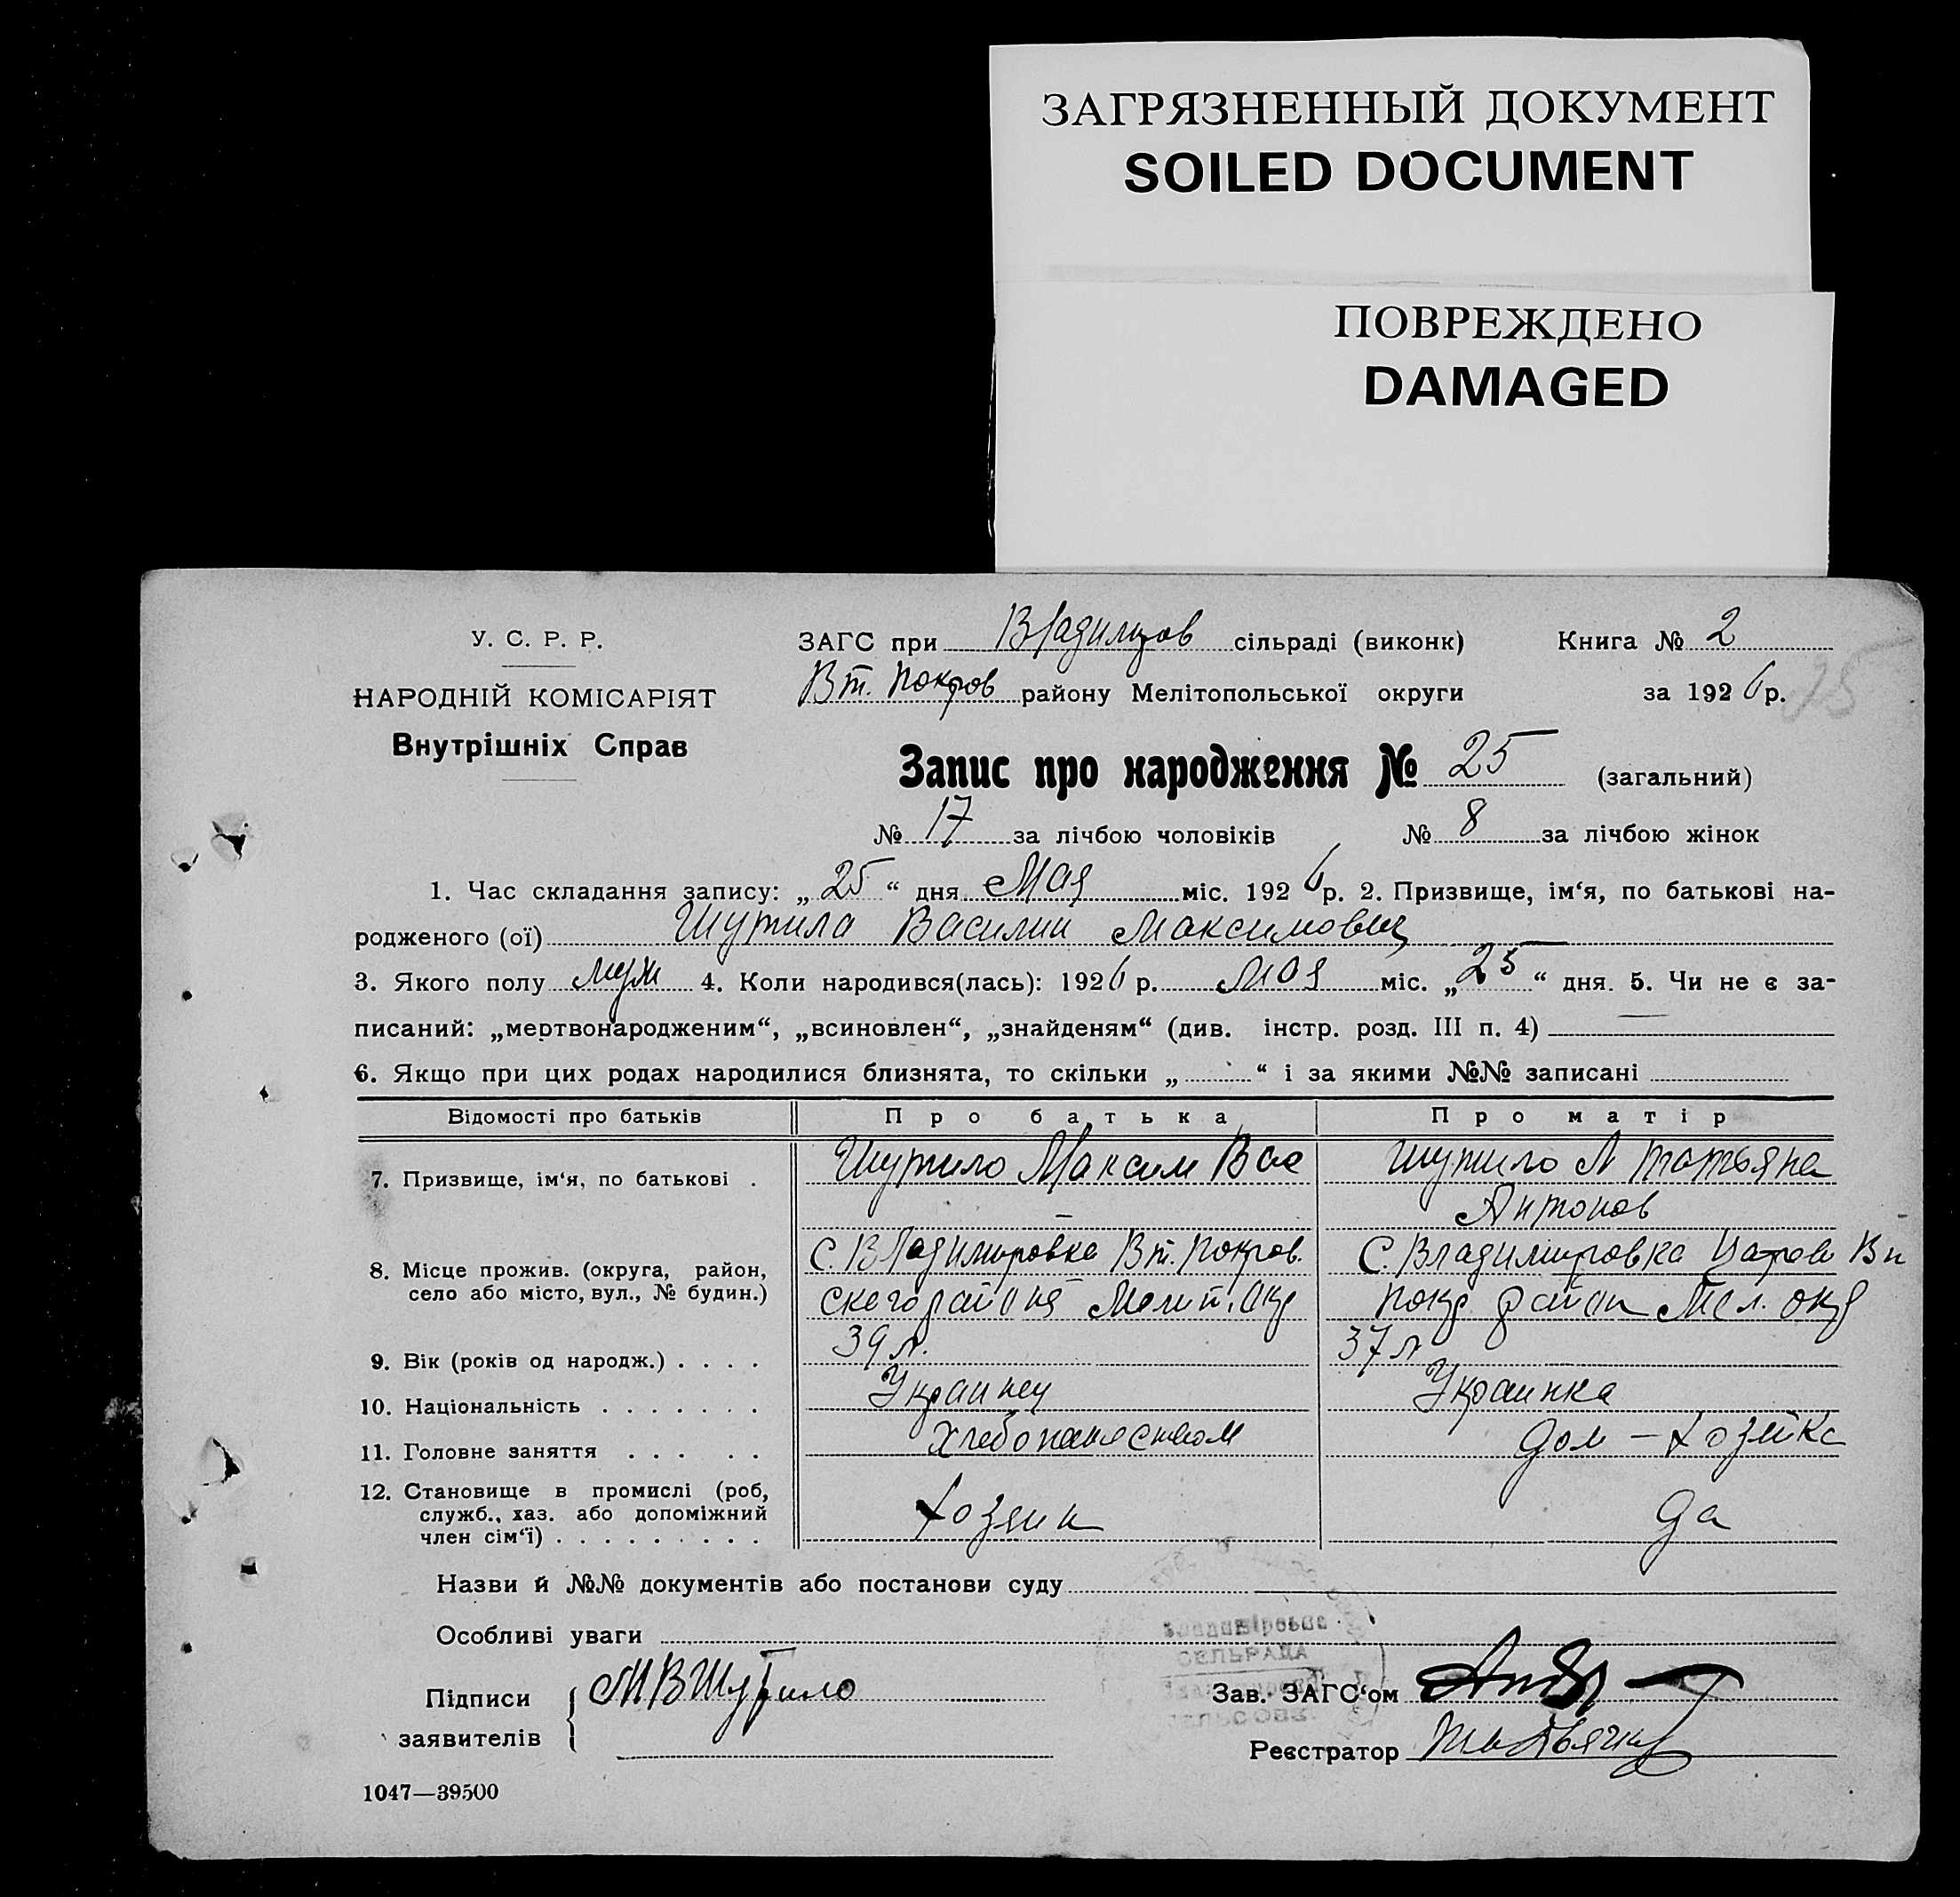 ЗАГРЯЗНЕННЫЙ ДОКУМЕНТ
SOILED DOCUMENT
ПОВРЕЖДЕНО
DAMAGED
У. С. Р. Р.
НАРОДНІЙ КОМІСАРІЯТ
Внутрішніх Справ
ЗАГС при Владимров сільраді (виконк) Книга № 2
Вт. Покров району Мелітопольської округи за 1926 р.
25
Запис про народження № 25 (загальний)
№ 17 за лічбою чоловіків № 8 за лічбою жінок
1. Час складання запису: „25“ дня Мая міс. 1926 р. 2. Призвище, ім‘я, по батькові на-
родженого (ої) Шутила Василий Максимович
3. Якого полу муж 4. Коли народився(лась): 1926 р. мая міс. „25“ дня. 5. Чи не є за-
писаний: „мертвонародженим“, „всиновлен“, „знайденям“ (див. інстр. розд. III п. 4) —
6. Якщо при цих родах народилися близнята, то скільки „ “ і за якими №№ записані
Відомості про батьків Про батька Про матір
7. Призвище, ім‘я, по батькові . Шутило Максим Вас Шутило Татьяна
Антонов
8. Місце прожив. (округа, район, село або місто, вул., № будин.) С. Владимировка Вт. Покров. С. Владимировка
ского района Мелит. Окр Покр район Мел. окр
9. Вік (років од народж.) . . . . 39 л. 37 л
10. Національність . . . . . . . Украинец Украинка
11. Головне заняття . . . . . Хлебопашеством дом — хозяйка
12. Становище в промислі (роб, служб., хаз. або допоміжний член сім‘ї) . . . . . . . . . хозяин да
Назви й №№ документів або постанови суду
Особливі уваги
СЕЛЬРАДА
Підписи заявителів М В Шутило
Зав. ЗАГС‘ом
Реєстратор
1047—39500